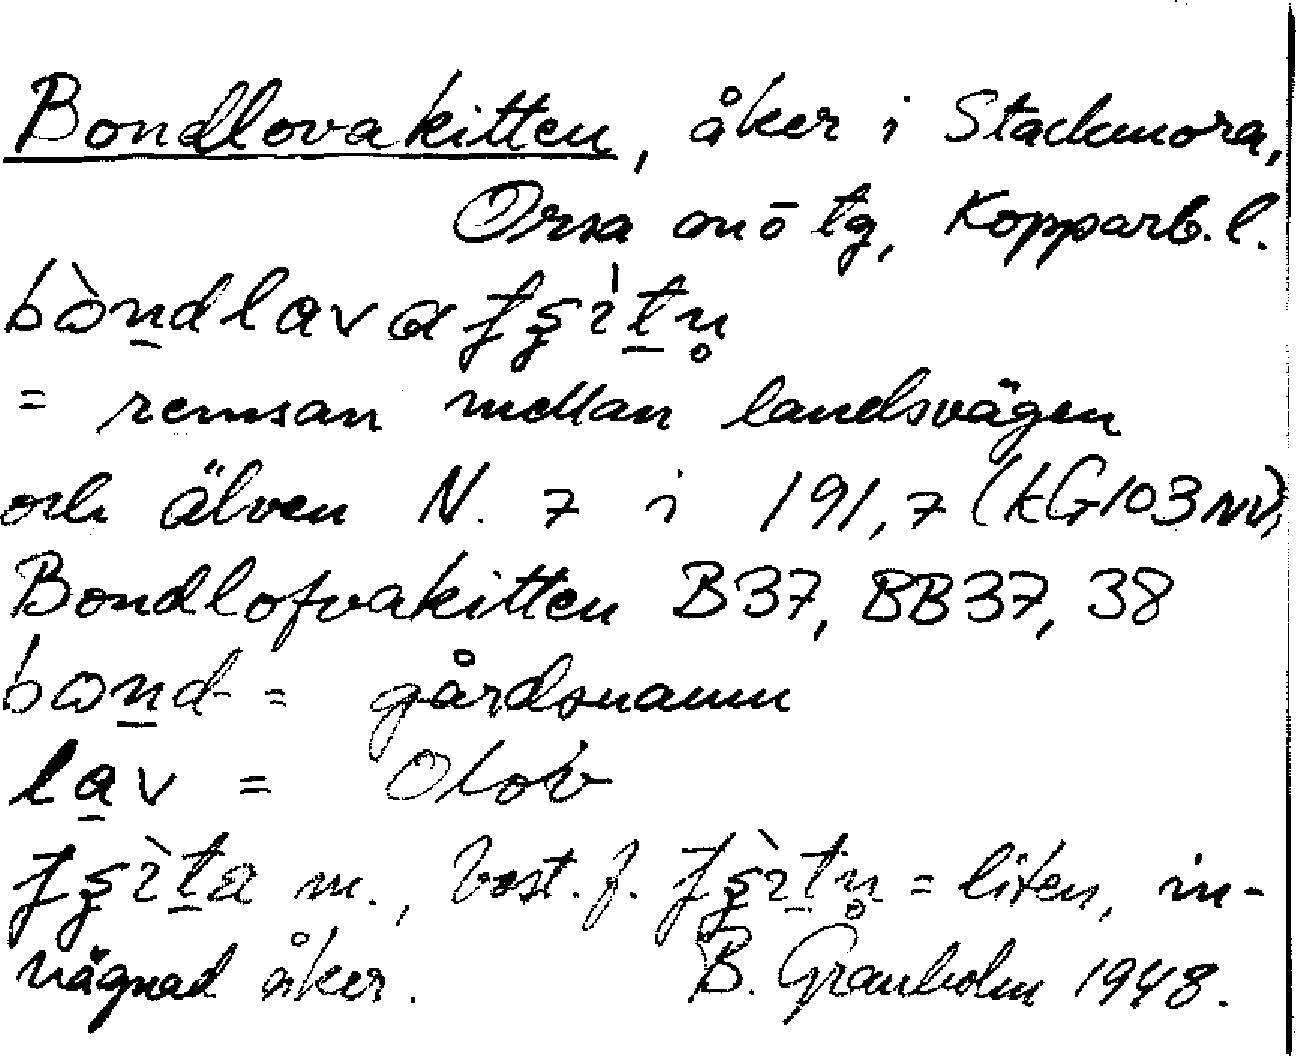 Bondlovakitten, åker i Stackmora,
Orsa snō tg, Kopparb. l.
= remsan mellan landsvägen
och älven N. 7 i 191,7 (kG103NV),
Bondlofvakitten B37, BB37, 38
bond = gårdsnamn
lav = Olov
m., best. f. = liten, in-
vägnad åker. B. Granholm 1948.